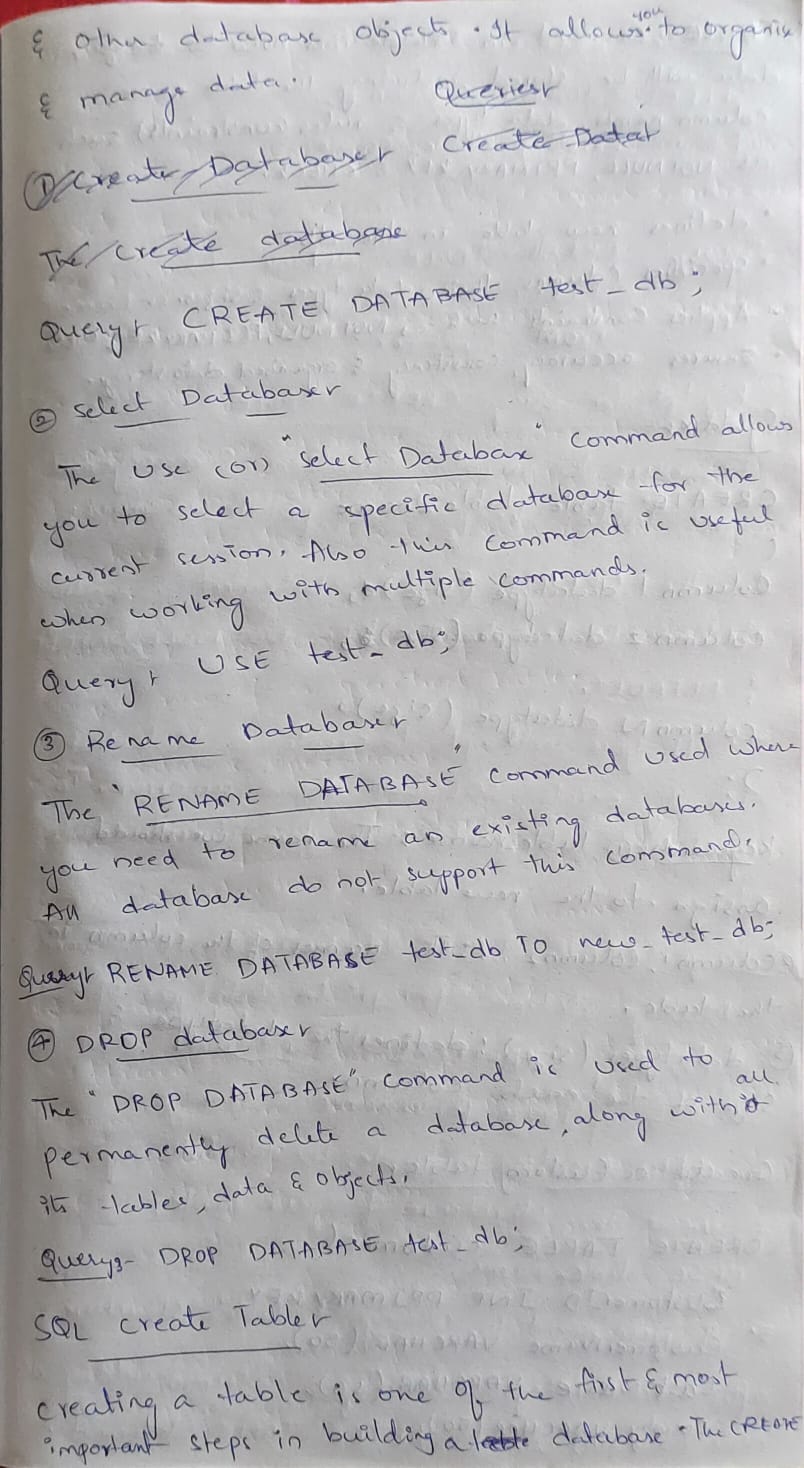 & other database objects. It allows you to organize
& manage data.
Queries:-
① Create Database:- Create Data:-
The Create database
Query:- CREATE DATABASE test_db;
② Select Database:-
The Use (or) "Select Database" Command allows
you to select a specific database for the
current session. Also this Command is useful
when working with multiple commands.
Query:- USE test_db;
③ Rename Database:-
The "RENAME DATABASE" Command used where
you need to rename an existing databases.
All database do not support this command.
Query:- RENAME DATABASE test_db TO new_test_db;
④ DROP database:-
The "DROP DATABASE" Command is used to
permanently delete a database, along with all
its tables, data & objects.
Query:- DROP DATABASE test_db;
SQL Create Table:-
Creating a table is one of the first & most
important steps in building a database. The CREATE